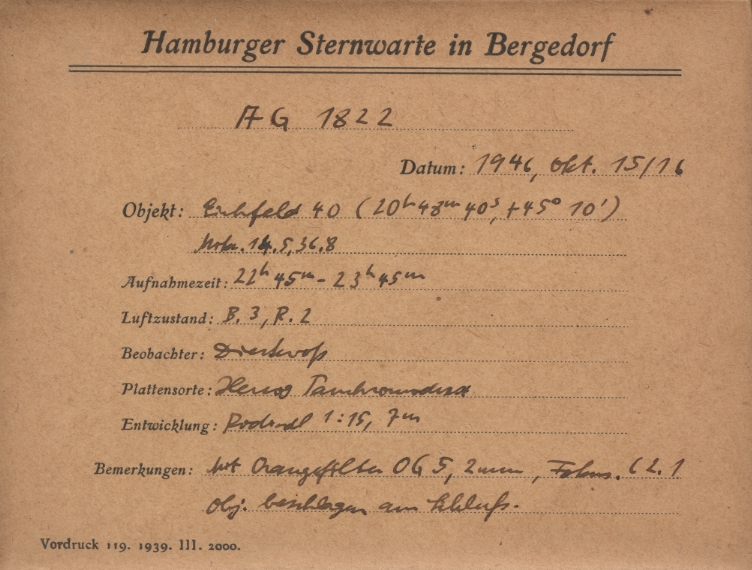 Hamburger Sternwarte in Bergedorf
AG 1822
Datum: 1946, Okt. 15/16
Objekt: Eichfeld 40 (20ʰ48ᵐ40ˢ, +45° 10')
14.5, 36.8
Aufnahmezeit: 22ʰ45ᵐ - 23ʰ45ᵐ
Luftzustand: B. 3, R. 2
Beobachter: Dieckvoß
Plattensorte:
Entwicklung: Rodinal 1:15, 7ᵐ
Bemerkungen: Mit Orangefilter OG 5, 2mm, Fokus. 62.1
Obj. beschlagen am Schluß.
Vordruck 119. 1939. III. 2000.